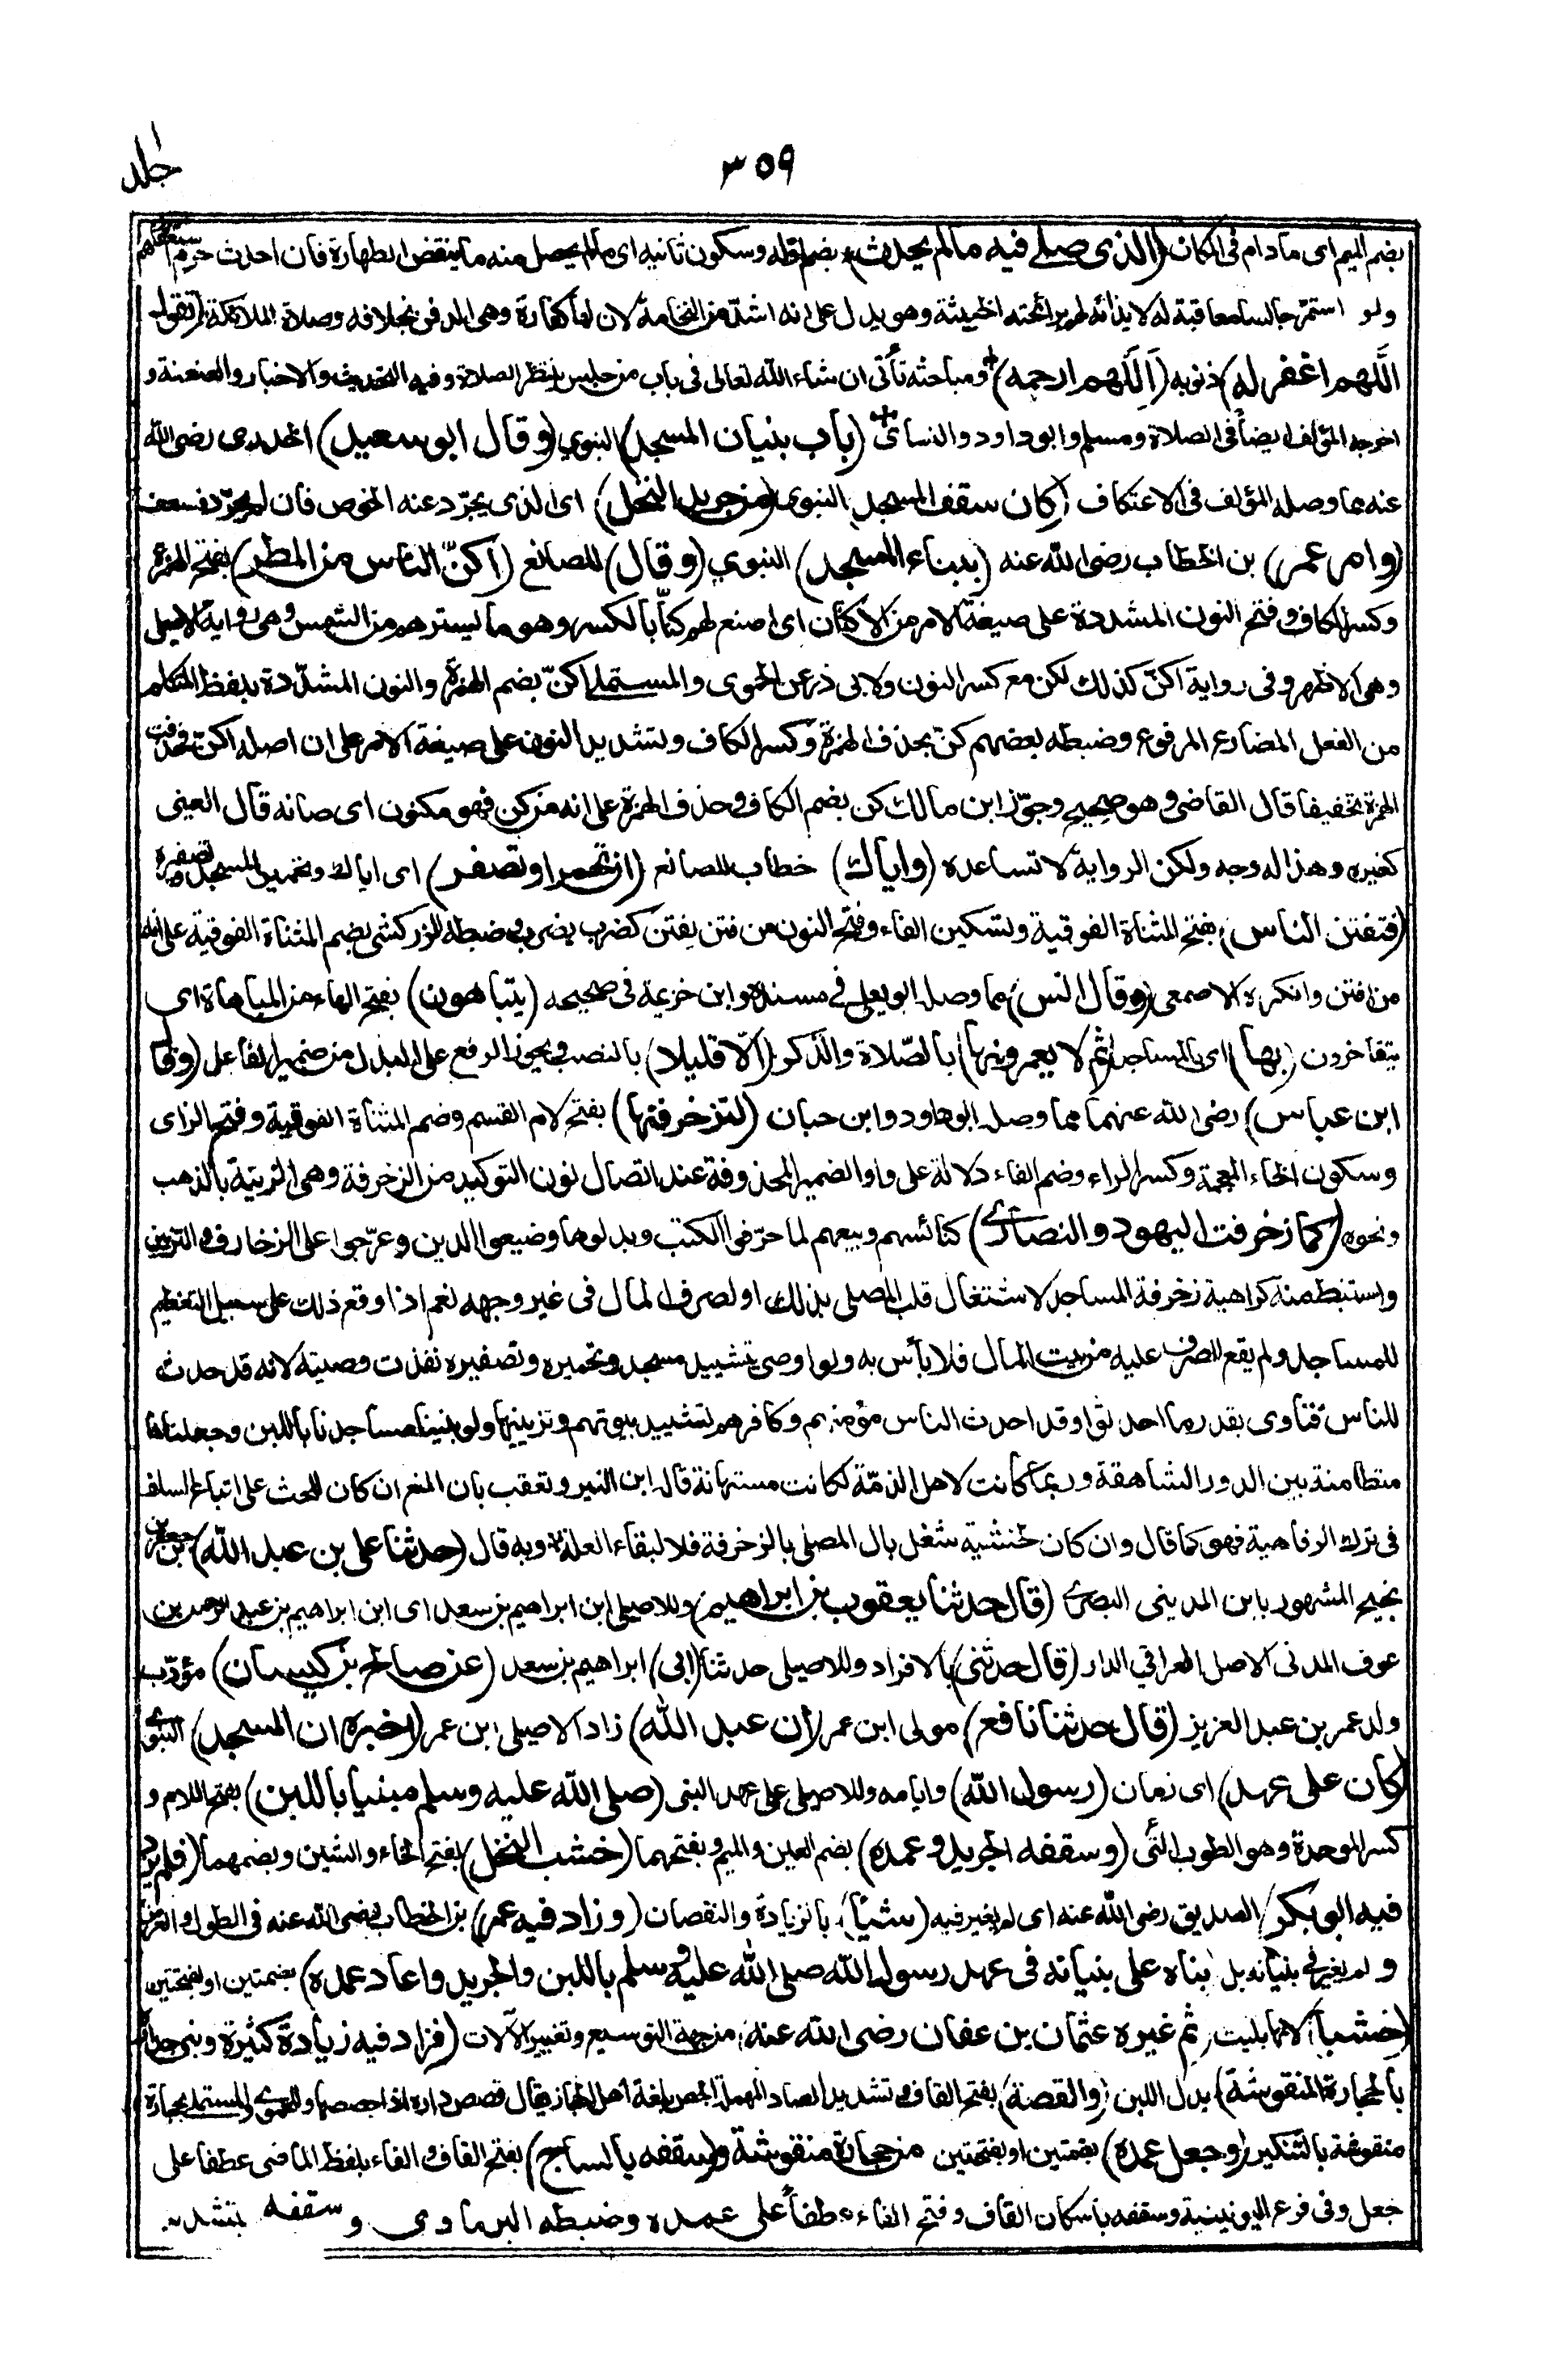 ٣٥٩
جلد
بضم الميم اى ما دام فى المكان (الذى صلى فيه ما لم يحدث) بضم اوله وسكون ثانيه اى ما لم يحصل منه ما ينقض الطهارة فان احدث حرم استغفارهم
ولو استمر جالسا معاقبة له لايذائه لهم برائحته الخبيثة وهو يدل على انه اشد من النخامة لان لها كفارة وهى الدفن بخلافه وصلاة الملائكة (تقول
اللّٰهم اغفر له) ذنوبه (اللّٰهم ارحمه) ومباحثه تأتى ان شاء الله تعالى فى باب من جلس ينتظر الصلاة وفيه التحديث والاخبار والعنعنة و
اخرجه المؤلف ايضاً فى الصلاة ومسلم وابو داود والنسائى (باب بنيان المسجد) النبوي (وقال ابو سعيد) الخدرى رضى الله
عنه مما وصله المؤلف فى الاعتكاف (كان سقف المسجد) النبوى (من جريد النخل) اى الذى يجرّد عنه الخوص فان لم يجرّد فسعف
(وامر عمر) بن الخطاب رضى الله عنه (ببناء المسجد) النبوي (وقال) للصانع (اكنّ الناس من المطر) بفتح الهمزة
وكسر الكاف وفتح النون المشددة على صيغة الامر من الاكنان اى اصنع لهم كنّا بالكسر وهو ما يسترهم من الشمس وهى رواية الاصيلى
وهى الاظهر وفى رواية اكنّ كذلك لكن مع كسر النون ولابى ذر عن الحموى والمستملى اكنّ بضم الهمزة والنون المشدّدة بلفظ المتكلم
من الفعل المضارع المرفوع وضبطه بعضهم كنّ بحذف الهمزة وكسر الكاف وتشديد النون على صيغة الامر على ان اصله اكنّ فحذفت
الهمزة تخفيفا قال القاضى وهو صحيح وجوّز ابن مالك كن بضم الكاف وحذف الهمزة على انه من كن فهو مكنون اى صانه قال العينى
كغيره وهذا له وجه ولكن الرواية لا تساعده (واياك) خطاب للصانع (ان تحمر او تصفر) اى اياك وتحمير المسجد وتصفيره
(فتفتن الناس) بفتح المثناة الفوقية وتسكين الفاء وفتح النون من فتن يفتن كضرب يضرب وضبطه الزركشى بضم المثناة الفوقية على انه
من افتن وانكره الاصمعى (وقال انس) مما وصله ابو يعلى في مسنده وابن خزيمة فى صحيحه (يتباهون) بفتح الهاء من المباهاة اى
يتفاخرون (بها) اى بالمساجد (ثم لا يعمرونها) بالصّلاة والذكر (الّا قليلا) بالنصب ويجوز الرفع على البدل من ضمير الفاعل (وقال
ابن عباس) رضى الله عنهما مما وصله ابو داود وابن حبان (لتزخرفنها) بفتح لام القسم وضم المثناة الفوقية وفتح الزاى
وسكون الخاء المعجمة وكسر الراء وضم الفاء دلالة على واو الضمير المحذوفة عند اتصال نون التوكيد من الزخرفة وهى الزينة بالذهب
ونحوه (كما زخرفت اليهود والنصارى) كنائسهم وبيعهم لما حرّفوا الكتب وبدلوها وضيعوا الدين وعرّجوا على الزخارف والتزيين
واستنبط منه كراهية زخرفة المساجد لاشتغال قلب المصلى بذلك او لصرف المال فى غير وجهه نعم اذا وقع ذلك على سبيل التعظيم
للمساجد ولم يقع الصرف عليه من بيت المال فلا بأس به ولو اوصى بتشييد مسجد وتحميره وتصفيره نفذت وصيته لانه قد حدث
للناس فتاوى بقدر ما احدثوا وقد احدث الناس مؤمنهم وكافرهم تشييد بيوتهم وتزيينها ولو بنينا مساجدنا باللبن وجعلناها
متطامنة بين الدور الشاهقة وربما كانت لاهل الذمّة لكانت مستهانة قاله ابن المنير وتعقب بان المنع ان كان للحث على اتباع السلف
فى ترك الرفاهية فهو كما قال وان كان لخشية شغل بال المصلى بالزخرفة فلا لبقاء العلة وبه قال (حدثنا على بن عبد الله) بن جعفر بن
نجيح المشهور بابن المدينى البصرى (قال حدثنا يعقوب بن ابراهيم) وللاصيلى ابن ابراهيم بن سعد اى ابن ابراهيم بن عبد الرحمن بن
عوف المدنى الاصل العراقي الدار (قال حدثنى) بالافراد وللاصيلى حدثنا (ابى) ابراهيم بن سعد (عن صالح بن كيسان) مؤدّب
ولد عمر بن عبد العزيز (قال حدثنا نافع) مولى ابن عمر (أن عبد الله) زاد الاصيلى ابن عمر (اخبره ان المسجد) النبوى
(كان على عهد) اى زمان (رسول الله) وايامه وللاصيلى على عهد النبى (صلى الله عليه وسلم مبنيا باللبن) بفتح اللام و
كسر الموحدة وهو الطوب النّى (وسقفه الجريد وعمده) بضم العين والميم وبفتحهما (خشب النخل) بفتح الخاء والشين وبضمهما (فلم يزد
فيه ابو بكر) الصديق رضى الله عنه اى لم يغير فيه (شيئا) بالزيادة والنقصان (وزاد فيه عمر) بن الخطاب رضى الله عنه فى الطول والعرض
و لم يغير فى بنيانه بل (بناه على بنيانه فى عهد رسول الله صلى الله عليه وسلم باللبن والجريد واعاد عمده) بضمتين او بفتحتين
(خشبا) لانها بليت (ثم غيره عثمان بن عفان رضى الله عنه) من جهة التوسيع وتغيير الآلات (فزاد فيه زيادة كثيرة وبنى جداره
بالحجارة المنقوشة) بدل اللبن (والقصة) بفتح القاف وتشديد الصاد المهملة الجص بلغة اهل الحجاز يقال قصص داره اذا جصصها وللحموى والمستملى بحجارة
منقوشة بالتنكير (وجعل عمده) بضمتين او بفتحتين من حجارة منقوشة (وسقفه بالساج) بفتح القاف والفاء بلفظ الماضى عطفا على
جعل وفى فرع اليونينية وسقفه باسكان القاف وفتح الفاء عطفاً على عمده وضبطه البرماوى و سقفه بتشديد